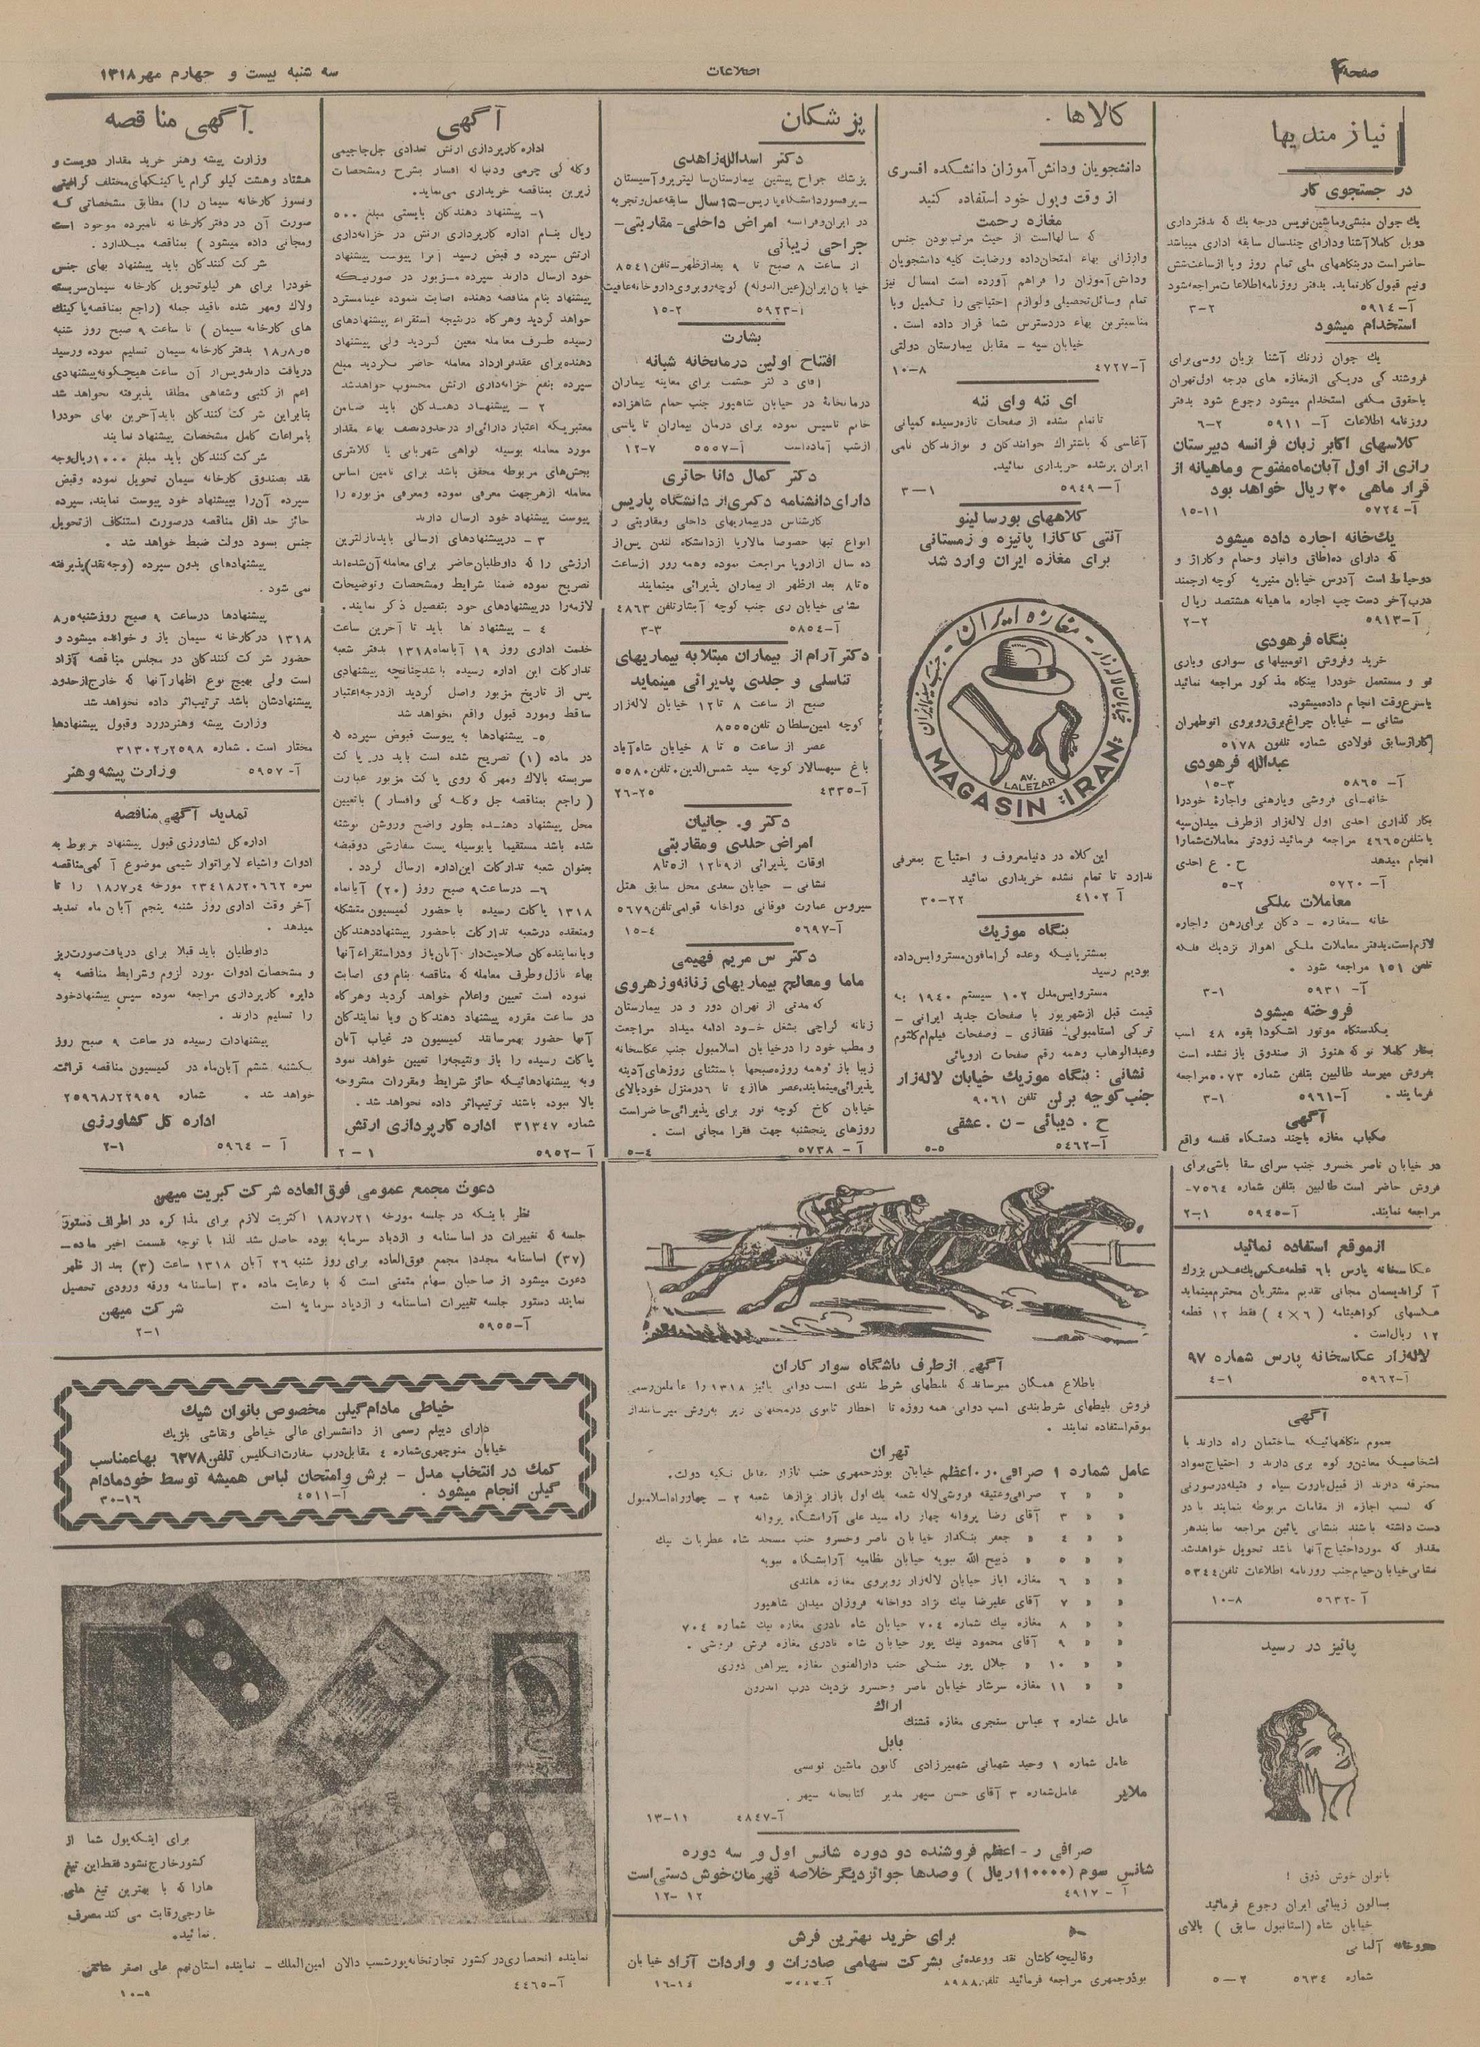 صفحه ۴
اطلاعات
سه شنبه بیست و چهارم مهر ۱۳۱۸
نیازمندیها
در جستجوی کار
یك جوان منشی وماشین نویس درجه یك که بدفترداری
دوبل کاملا آشنا ودارای چندسال سابقه اداری میباشد
حاضر است دربنگاههای ملی تمام روز ویا ازساعت شش
ونیم قبول کارنماید. بدفتر روزنامه اطلاعات مراجعه شود
آ-۵۹۱۴ ۳-۲
استخدام میشود
یك جوان زرنك آشنا بزبان روسی برای
فروشندگی دریکی ازمغازه های درجه اول تهران
باحقوق مکفی استخدام میشود رجوع شود بدفتر
روزنامه اطلاعات آ- ۵۹۱۱ ۶-۲
کلاسهای اکابر زبان فرانسه دبیرستان
رازی از اول آبان ماه مفتوح وماهیانه از
قرار ماهی ۳۰ ریال خواهد بود
آ-۵۷۲۴ ۱۵-۱۱
یك خانه اجاره داده میشود
که دارای ده اطاق وانبار وحمام وگاراژ و
دوحیاط است آدرس خیابان منیریه کوچه ارجمند
درب آخر دست چپ اجاره ماهیانه هشتصد ریال
آ-۵۹۱۳ ۲-۲
بنگاه فرهودی
خرید وفروش اتومبیلهای سواری وباری
نو و مستعمل خودرا ببنگاه مذکور مراجعه نمائید
باسرع وقت انجام داده میشود.
نشانی - خیابان چراغ برق روبروی اتوطهران
گاراژسابق فولادی شماره تلفون ۵۱۷۸
عبدالله فرهودی
آ- ۵۸۶۵ ۱۵-۳
خانهـای فروشی وبارهنی واجارهٔ خودرا
بکار گذاری احدی اول لاله زار ازطرف میدان سپه
باتلفن ۴۶۶۵ مراجعه فرمائید زودتر معاملات شمارا
انجام میدهد ح . ع احدی
آ- ۵۷۲۰ ۵-۲
معاملات ملکی
خانه - مغازه - دکان برای رهن واجاره
لازم است. بدفتر معاملات ملکی اهواز نزدیك فلکه
تلفن ۱۵۱ مراجعه شود .
آ- ۵۹۳۱ ۳-۱
فروخته میشود
یکدستگاه موتور اشکودا بقوه ۴۸ اسب
بخار کاملا نو که هنوز از صندوق باز نشده است
بفروش میرسد طالبین بتلفن شماره ۵۰۷۳ مراجعه
فرمایند . آ-۵۹۶۱ ۳-۱
آگهی
مکباب مغازه باچند دستگاه قفسه واقع
در خیابان ناصر خسرو جنب سرای سقا باشی برای
فروش حاضر است طالبین بتلفن شماره ۷۵۶۴-
مراجعه نمایند. آ-۵۹۴۵ ۲-۱
ازموقع استفاده نمائید
عکاسخانه پارس با ۶ قطعه عکس یك عکس بزرك
آگراندیسمان مجانی تقدیم مشتریان محترم مینماید
عکسهای گواهینامه (۶×۴) فقط ۱۲ قطعه
۱۲ ریال است .
لاله زار عکاسخانه پارس شماره ۹۷
آ-۵۹۶۲ ۴-۱
آگهی
بعموم بنگاههائیکه ساختمان راه دارند یا
اشخاصیکه معادن و کوه بری دارند و احتیاج بمواد
محترقه دارند از قبیل باروت سیاه و فتیله درصورتی
که کسب اجازه از مقامات مربوطه بنمایند یا در
دست داشته باشند بنشانی پائین مراجعه نمایند هر
مقدار که مورد احتیاج آنها باشد تحویل خواهد شد
نشانی خیابان خیام جنب روزنامه اطلاعات تلفن ۵۳۴۴
آ-۵۶۳۲ ۱۰-۸
پائیز در رسید
بانوان خوش ذوق !
بسالون زیبائی ایران رجوع فرمائید
خیابان شاه (استانبول سابق ) بالای
آلمانی
شماره ۵۶۳۴ ۵-۲
کالاها
دانشجویان ودانش آموزان دانشکده افسری
از وقت وپول خود استفاده کنید
مغازه رحمت
که سالها است از حیث مرغوب بودن جنس
وارزانی بهاء امتحان داده ورضایت کلیه دانشجویان
ودانش آموزان را فراهم آورده است امسال نیز
تمام وسائل تحصیلی ولوازم احتیاجی را تکمیل وبا
مناسبترین بهاء دردسترس شما قرار داده است .
خیابان سپه - مقابل بیمارستان دولتی
آ-۴۷۲۷ ۱۰-۸
ای ننه وای ننه
تاتمام نشده از صفحات تازه رسیده کمپانی
آغاسی که باشتراك خوانندگان و نوازندگان نامی
ایران پرشده خریداری نمائید.
آ-۵۹۴۹ ۳-۱
کلاههای بورسالینو
آنتی کاکازا پانیزه و زمستانی
برای مغازه ایران وارد شد
مغازه ایران
خیابان لاله زار - جنب سینما ایران
AV. LALEZAR
MAGASIN IRAN
این کلاه در دنیا معروف و احتیاج بمعرفی
ندارد تا تمام نشده خریداری نمائید
آ ۴۱۰۲ ۳۰-۲۲
بنگاه موزیك
بمشتریانیکه وعده گرامافون مستروایس داده
بودیم رسید
مستروایس مدل ۱۰۲ سیستم ۱۹۴۰ به
قیمت قبل ازشهریور با صفحات جدید ایرانی -
ترکی استامبولی- قفقازی - وصفحات فیلم ام کلثوم
وعبدالوهاب وهمه رقم صفحات اروپائی
نشانی : بنگاه موزیك خیابان لاله زار
جنب کوچه برلن تلفن ۹۰۶۱
ح . دیبائی - ن . عشقی
آ-۵۴۶۲ ۵-۵
پزشکان
دکتر اسدالله زاهدی
پزشك جراح پیشین بیمارستان سالپتریر و آسیستان
پرفسور دانشگاه پاریس-۱۵ سال سابقه عمل وتجربه
در ایران وفرانسه امراض داخلی- مقاربتی-
جراحی زیبائی
از ساعت ۸ صبح تا ۹ بعدازظهر-تلفن ۸۵۴۱
خیابان ایران(عین الدوله) کوچه روبروی داروخانه عافیت
آ-۵۹۲۳ ۱۵-۲
بشارت
افتتاح اولین درمانخانه شبانه
آقای دکتر حشمت برای معاینه بیماران
درمانخانهٔ در خیابان شاهپور جنب حمام شاهزاده
خانم تاسیس نموده برای درمان بیماران تا پاسی
ازشب آماده است آ-۵۵۵۷ ۱۲-۷
دکتر کمال دانا حائری
دارای دانشنامه دکتری از دانشگاه پاریس
کارشناس دربیماریهای داخلی ومقاربتی و
انواع تبها خصوصا مالاریا ازدانشگاه لندن پس از
ده سال ازاروپا مراجعت نموده وهمه روز ازساعت
۵ تا ۸ بعد ازظهر از بیماران پذیرائی مینمایند
نشانی خیابان ری جنب کوچه آبشار تلفن ۴۸۶۳
آ-۵۸۵۴ ۳-۳
دکتر آرام از بیماران مبتلا به بیماریهای
تناسلی و جلدی پذیرائی مینماید
صبح از ساعت ۸ تا ۱۲ خیابان لاله زار
کوچه امین سلطان تلفن ۸۵۵۵
عصر از ساعت ۵ تا ۸ خیابان شاه آباد
باغ سپهسالار کوچه سید شمس الدین. تلفن ۵۵۸۰
آ-۴۳۳۵ ۲۶-۲۵
دکتر و. جانیان
امراض جلدی ومقاربتی
اوقات پذیرائی از ۹ تا ۱۲ از ۵ تا ۸
نشانی - خیابان سعدی محل سابق هتل
سیروس عمارت فوقانی دواخانه قوامی تلفن ۵۶۷۹
آ-۵۶۹۷ ۱۵-۴
دکتر س مریم فهیمی
ماما ومعالج بیماریهای زنانه وزهروی
که مدتی از تهران دور و در بیمارستان
زنانه کراچی بشغل خـود ادامه میداد مراجعت
و مطب خود را درخیابان اسلامبول جنب عکاسخانه
زیبا باز وهمه روزه صبحها باستثنای روزهای آدینه
پذیرائی مینمایند. عصرها از ۴ تا ۶ درمنزل خود بالای
خیابان کاخ کوچه نور برای پذیرائی حاضر است
روزهای پنجشنبه جهت فقرا مجانی است .
آ - ۵۷۳۸ ۵-۴
آگهی
اداره کارپردازی ارتش تعدادی جل جاجیمی
وکله گی چرمی ودنباله افسار بشرح ومشخصات
زیرین بمناقصه خریداری می نماید.
۱- پیشنهاد دهندگان بایستی مبلغ ۵۰۰
ریال بنام اداره کارپردازی ارتش در خزانه داری
ارتش سپرده و قبض رسید آنرا پیوست پیشنهاد
خود ارسال دارند سپرده مزبور در صورتیکه
پیشنهاد بنام مناقصه دهنده اصابت ننموده عینا مسترد
خواهد گردید وهرگاه درنتیجه استقراء پیشنهادهای
رسیده طرف معامله معین گردید ولی پیشنهاد
دهنده برای عقدقرارداد معامله حاضر نگردید مبلغ
سپرده بنفع خزانه داری ارتش محسوب خواهد شد
۲ - پیشنهاد دهندگان باید ضامن
معتبریکه اعتبار دارائی او درحدود نصف بهاء مقدار
مورد معامله بوسیله گواهی شهربانی یا کلانتری
بخش های مربوطه محقق باشد برای تامین اساس
معامله ازهرجهت معرفی نموده ومعرفی مزبوره را
پیوست پیشنهاد خود ارسال دارند
۳ - درپیشنهادهای ارسالی باید نازلترین
ارزشی را که داوطلبان حاضر برای معامله آن شده اند
تصریح نموده ضمنا شرایط ومشخصات وتوضیحات
لازمه را درپیشنهادهای خود بتفصیل ذکر نمایند.
۴ - پیشنهاد ها باید تا آخرین ساعت
خدمت اداری روز ۱۹ آبانماه ۱۳۱۸ بدفتر شعبه
تدارکات این اداره رسیده باشد چنانچه پیشنهادی
پس از تاریخ مزبور واصل گردید ازدرجه اعتبار
ساقط ومورد قبول واقع نخواهد شد
۵- پیشنهادها به پیوست قبوض سپرده که
در ماده (۱) تصریح شده است باید در پاکت
سربسته بالاك ومهر که روی پاکت مزبور عبارت
( راجع بمناقصه جل وکله گی وافسار ) باتعیین
محل پیشنهاد دهنـده بطور واضح وروشن نوشته
شده باشد مستقیما یابوسیله پست سفارشی دوقبضه
بعنوان شعبه تدارکات این اداره ارسال گردد .
۶- درساعت ۹ صبح روز (۲۰) آبانماه
۱۳۱۸ پاکات رسیده با حضور کمیسیون متشکله
ومنعقده درشعبه تدارکات باحضور پیشنهاددهندگان
ویانماینده گان صلاحیت دار آنان باز ودراستقراء آنها
بهاء نازل وطرف معامله که مناقصه بنام وی اصابت
نموده است تعیین واعلام خواهد گردید وهرگاه
در ساعت مقرره پیشنهاد دهندگان ویا نمایندگان
آنها حضور بهم رسانند کمیسیون در غیاب آنان
پاکات رسیده را باز ونتیجه را تعیین خواهد نمود
وبه پیشنهادهائیکه حائز شرایط ومقررات مشروحه
بالا نبوده باشند ترتیب اثر داده نخواهد شد .
شماره ۳۱۳۴۷ اداره کارپردازی ارتش
آ-۵۹۵۲ ۲-۱
آگهی مناقصه
وزارت پیشه وهنر خرید مقدار دویست و
هشتاد وهشت کیلو گرام
ونسوز کارخانه سیمان را) مطابق مشخصاتی که
صورت آن در دفتر کارخانه نامبرده موجود است
ومجانی داده میشود ) بمناقصه میگذارد .
شرکت کنندگان باید پیشنهاد بهای جنس
خودرا برای هر کیلو تحویل کارخانه سیمان سربسته
ولاك ومهر شده باقید جمله (راجع بمناقصه
های کارخانه سیمان ) تا ساعت ۹ صبح روز شنبه
۱۸ر۸ر۵ بدفتر کارخانه سیمان تسلیم نموده ورسید
دریافت دارند وپس از آن ساعت هیچگونه پیشنهادی
اعم از کتبی وشفاهی مطلقا پذیرفته نخواهد شد
بنابراین شرکت کنندگان باید آخرین بهای خودرا
بامراعات کامل مشخصات پیشنهاد نمایند
شرکت کنندگان باید مبلغ ۱۰۰۰ ریال وجه
نقد بصندوق کارخانه سیمان تحویل نموده وقبض
سپرده آن را بپیشنهاد خود پیوست نمایند. سپرده
حائز حد اقل مناقصه درصورت استنکاف از تحویل
جنس بسود دولت ضبط خواهد شد .
پیشنهادهای بدون سپرده (وجه نقد) پذیرفته
نمی شود .
پیشنهادها درساعت ۹ صبح روز شنبه ۵ر۸
۱۳۱۸ در کارخانه سیمان باز و خوانده میشود و
حضور شرکت کنندگان در مجلس مناقصه آزاد
است ولی بهیچ نوع اظهار آنها که خارج ازحدود
پیشنهادشان باشد ترتیب اثر داده نخواهد شد
وزارت پیشه وهنر دررد وقبول پیشنهادها
مختار است . شماره ۲۵۹۸ر۳۱۳۰۲
آ-۵۹۵۷ وزارت پیشه وهنر
تمدید آگهی مناقصه
اداره کل کشاورزی قبول پیشنهاد مربوط به
ادوات واشیاء لابراتوار شیمی موضوع آگهی مناقصه
نمره ۲۰۶۶۲ر۲۳۴۱۸ مورخه ۱۸ر۷ر۴ را تا
آخر وقت اداری روز شنبه پنجم آبان ماه تمدید
میدهد .
داوطلبان باید قبلا برای دریافت صورت ریز
و مشخصات ادوات مورد لزوم وشرایط مناقصه به
دایره کارپردازی مراجعه نموده سپس پیشنهاد خود
را تسلیم دارند .
پیشنهادات رسیده در ساعت ۹ صبح روز
یکشنبه ششم آبان ماه در کمیسیون مناقصه قرائت
خواهد شد . شماره ۲۲۹۵۹ر۲۵۹۶۸
اداره کل کشاورزی
آ - ۵۹۶۴ ۲-۱
دعوت مجمع عمومی فوق العاده شرکت کبریت میهن
نظر باینکه در جلسه مورخه ۱۸ر۷ر۲۱ اکثریت لازم برای مذاکره در اطراف دستور
جلسه که تغییرات در اساسنامه و ازدیاد سرمایه بوده حاصل نشد لذا با توجه قسمت اخیر ماده-
(۳۷) اساسنامه مجددا مجمع فوق العاده برای روز شنبه ۲۶ آبان ۱۳۱۸ ساعت (۳) بعد از ظهر
دعوت میشود از صاحبان سهام متمنی است که با رعایت ماده ۳۰ اساسنامه ورقه ورودی تحصیل
نمایند دستور جلسه تغییرات اساسنامه و ازدیاد سرمایه است شرکت میهن
آ-۵۹۵۵ ۲-۱
خیاطی مادام گیلن مخصوص بانوان شیك
دارای دیپلم رسمی از دانشسرای عالی خیاطی ونقاشی بلژیك
خیابان منوچهری شماره ۴ مقابل درب سفارت انگلیس تلفن ۶۳۷۸ بهاء مناسب
کمك در انتخاب مدل - برش وامتحان لباس همیشه توسط خود مادام
گیلن انجام میشود . آ-۴۵۱۱ ۳۰-۱۶
برای اینکه پول شما از
کشور خارج نشود فقط این تیغ
هارا که با بهترین تیغ های
خارجی رقابت می کند مصرف
نمائید.
نماینده انحصاری در کشور تجارتخانه پورشسب دالان امین الملك - نماینده استان نهم علی اصغر
آ-۴۴۶۵ ۱۰-۹
آگهی ازطرف باشگاه سوارکاران
باطلاع همگان میرساند که بلیطهای شرط بندی اسب دوانی پائیز ۱۳۱۸ را عاملین رسمی
فروش بلیطهای شرط بندی اسب دوانی همه روزه تا اخطار ثانوی درمحلهای زیر بفروش میرسانند از
موقع استفاده نمایند .
تهران
عامل شماره ۱ صرافی . ر. اعظم خیابان بوذرجمهری جنب بازار مقابل تکیه دولت.
« « ۲ صرافی وعتیقه فروشی لاله شعبه یك اول بازار بزازها شعبه ۲ - چهارراه اسلامبول
« « ۳ آقای رضا پروانه چهار راه سید علی آرایشگاه پروانه
« « ۴ « جعفر بنکدار خیابان ناصر وخسرو جنب مسجد شاه عطریات نیك
« « ۵ « ذبیح الله سویه خیابان نظامیه آرایشگاه سویه
« « ۶ مغازه ایاز خیابان لاله زار روبروی مغازه هلندی
« « ۷ آقای علیرضا نیك نژاد دواخانه فروزان میدان شاهپور
« « ۸ مغازه نیك شماره ۷۰۴ خیابان شاه نادری مغازه نیك شماره ۷۰۴
« « ۹ آقای محمود نیك پور خیابان شاه نادری مغازه فرش فروشی .
« « ۱۰ « جلال پور سنگی جنب دارالفنون مغازه پیراهن دوزی
« « ۱۱ مغازه سرشار خیابان ناصر وخسرو نزدیك درب اندرون
اراك
عامل شماره ۲ عباس سنجری مغازه قشنك
بابل
عامل شماره ۱ وحید شهبانی شهمیرزادی کانون ماشین نویسی
ملایر عامل شماره ۳ آقای حسن سپهر مدیر کتابخانه سپهر .
آ-۴۸۴۷ ۱۳-۱۱
صرافی ر- اعظم فروشنده دو دوره شانس اول و سه دوره
شانس سوم (۱۱۰۰۰۰ ریال ) وصدها جوائز دیگر خلاصه قهرمان خوش دستی است
آ - ۴۹۱۷ ۱۲-۱۲
برای خرید بهترین فرش
وقالیچه کاشان نقد ووعده ئی بشرکت سهامی صادرات و واردات آزاد خیابان
بوذرجمهری مراجعه فرمائید تلفن ۸۹۸۸ ۱۶-۱۴